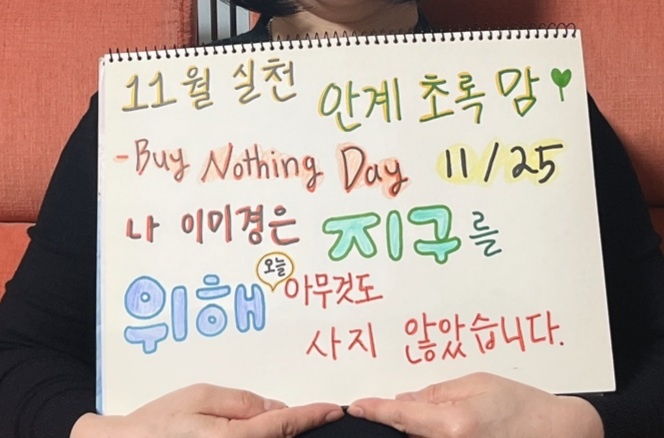 11월 실천 안계 초록맘
- Buy Nothing Day 11/25
나 이미경은 지구를
위해 오늘 아무것도
사지 않았습니다.